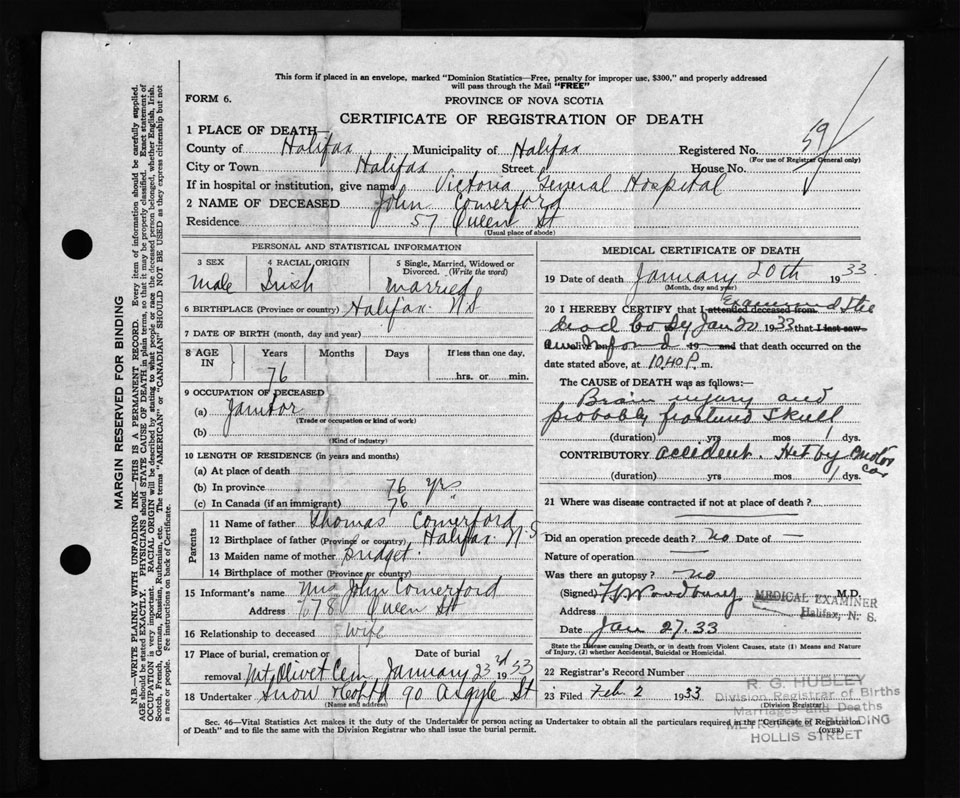 This form if placed in an envelope, marked "Dominion Statistics—Free, penalty for improper use, $300," and properly addressed
will pass through the Mail "FREE"
FORM 6.
PROVINCE OF NOVA SCOTIA
CERTIFICATE OF REGISTRATION OF DEATH
1 PLACE OF DEATH—
County of Halifax Municipality of Halifax Registered No. 59
(For use of Registrar General only)
City or Town Halifax Street House No.
If in hospital or institution, give name Victoria General Hospital
2 NAME OF DECEASED John Comerford
Residence 57 Queen St
(Usual place of abode)
PERSONAL AND STATISTICAL INFORMATION
3 SEX 4 RACIAL ORIGIN 5 Single, Married, Widowed or Divorced. (Write the word)
Male Irish Married
6 BIRTHPLACE (Province or country) Halifax N S
7 DATE OF BIRTH (month, day and year)
8 AGE IN Years Months Days If less than one day,
76 hrs. or min.
9 OCCUPATION OF DECEASED
(a) Janitor
(Trade or occupation or kind of work)
(b)
(Kind of industry)
10 LENGTH OF RESIDENCE (in years and months)
(a) At place of death
(b) In province 76 yrs
(c) In Canada (if an immigrant) 76 "
Parents
11 Name of father Thomas Comerford
12 Birthplace of father (Province or country) Halifax N S
13 Maiden name of mother Bridget
14 Birthplace of mother (Province or country)
15 Informant's name Mrs John Comerford
Address Queen St
16 Relationship to deceased wife
17 Place of burial, cremation or removal Date of burial
Mt Olivet Cem January 23rd 1933
18 Undertaker Snow & Co Ltd 90 Argyle St
(Name and address)
MEDICAL CERTIFICATE OF DEATH
19 Date of death January 20th 1933.
(Month, day and year)
20 I HEREBY CERTIFY that I attended deceased from: Examined the
dead body Jan 20 1933 that I last saw
and found 19 and that death occurred on the
date stated above, at 10.40 P. m.
The CAUSE OF DEATH was as follows:—
Brain injury and
probably fractured skull
(duration) yrs mos 1 dys.
CONTRIBUTORY accident. Hit by motor car
(duration) yrs mos 1 dys.
21 Where was disease contracted if not at place of death?
Did an operation precede death? No Date of —
Nature of operation —
Was there an autopsy? no
(Signed) M.D.
MEDICAL EXAMINER
Halifax, N. S.
Address
Date Jan 27.33
State the Disease causing Death, or in death from Violent Causes, state (1) Means and Nature of Injury, (2) whether Accidental, Suicidal or Homicidal.
22 Registrar's Record Number
23 Filed Feb 2 1933
(Division Registrar)
R. G. HUBLEY
Division Registrar of Births
Marriages and Deaths
METROPOLE BUILDING
HOLLIS STREET
Sec. 46—Vital Statistics Act makes it the duty of the Undertaker or person acting as Undertaker to obtain all the particulars required in the "Certificate of Registration
of Death" and to file the same with the Division Registrar who shall issue the burial permit.
(OVER)
MARGIN RESERVED FOR BINDING
N.B.—WRITE PLAINLY WITH UNFADING INK—THIS IS A PERMANENT RECORD. Every item of information should be carefully supplied.
AGE should be stated EXACTLY. PHYSICIANS should STATE CAUSE OF DEATH in plain terms, so that it may be properly classified. Exact statement of
OCCUPATION is very important. RACIAL ORIGIN will be described by stating to what people or race the deceased person belonged, whether English, Irish,
Scotch, French, German, Russian, Ruthenian, etc. The terms "AMERICAN" or "CANADIAN" SHOULD NOT BE USED as they express citizenship but not
a race or people. See instructions on back of Certificate.